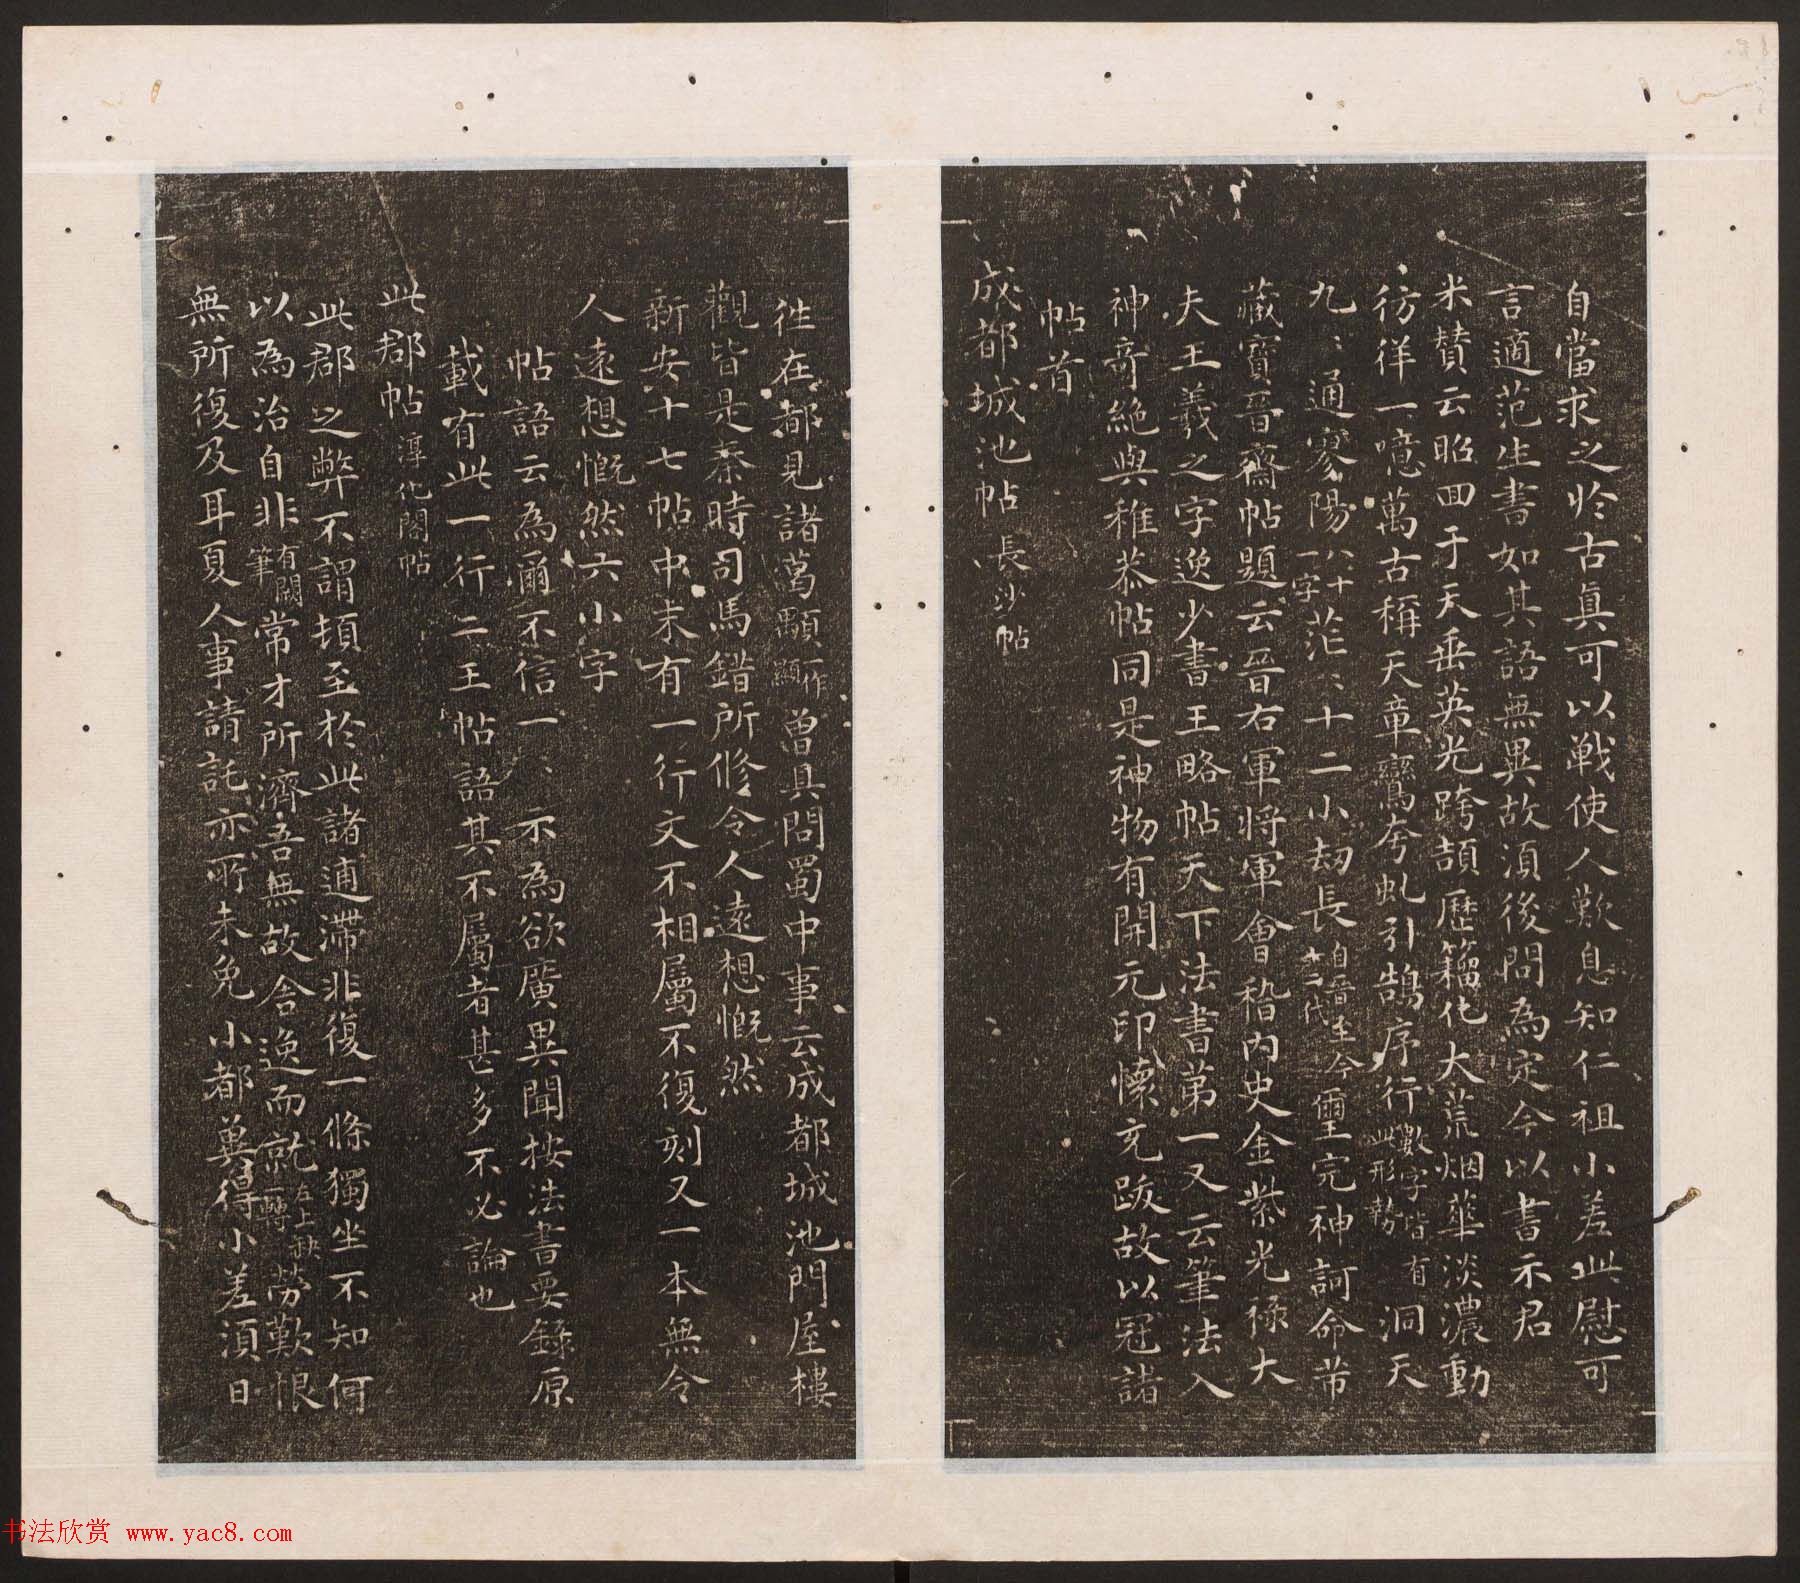 自當求之於古真可以戰使人歎息知仁祖小差此慰可
言適范生書如其語無異故須後問為定今以書示君
米贊云昭回于天垂英光跨頡歷籀化大荒烟華淡濃動
彷徉一噫萬古稱天章鸞夸虬引鵠序行數字皆有此形勢洞天
九〻通寥陽八十一字茫〻十二小劫長自晉至今十二代璽完神訶命芾
藏寶晉齋帖題云晉右軍將軍會稽內史金紫光祿大
夫王羲之字逸少書王略帖天下法書第一又云筆法入
神奇絕與稚恭帖同是神物有開元印懷充跋故以冠諸
帖首
成都城池帖 長沙帖
往在都見諸葛顒一作顯曾具問蜀中事云成都城池門屋樓
觀皆是秦時司馬錯所修令人遠想慨然
新安十七帖中未有一行文不相屬不復刻又一本無令
人遠想慨然六小字
帖語云為爾不信一〻示為欲廣異聞按法書要錄原
載有此一行二王帖語其不屬者甚多不必論也
此郡帖 淳化閣帖
此郡之弊不謂頓至於此諸逋滯非復一條獨坐不知何
以為治自非有闕筆常才所濟吾無故舍逸而就左上缺一轉勞歎恨
無所復及耳夏人事請託亦所未免小都冀得小差須日
书法欣赏 www.yac8.com